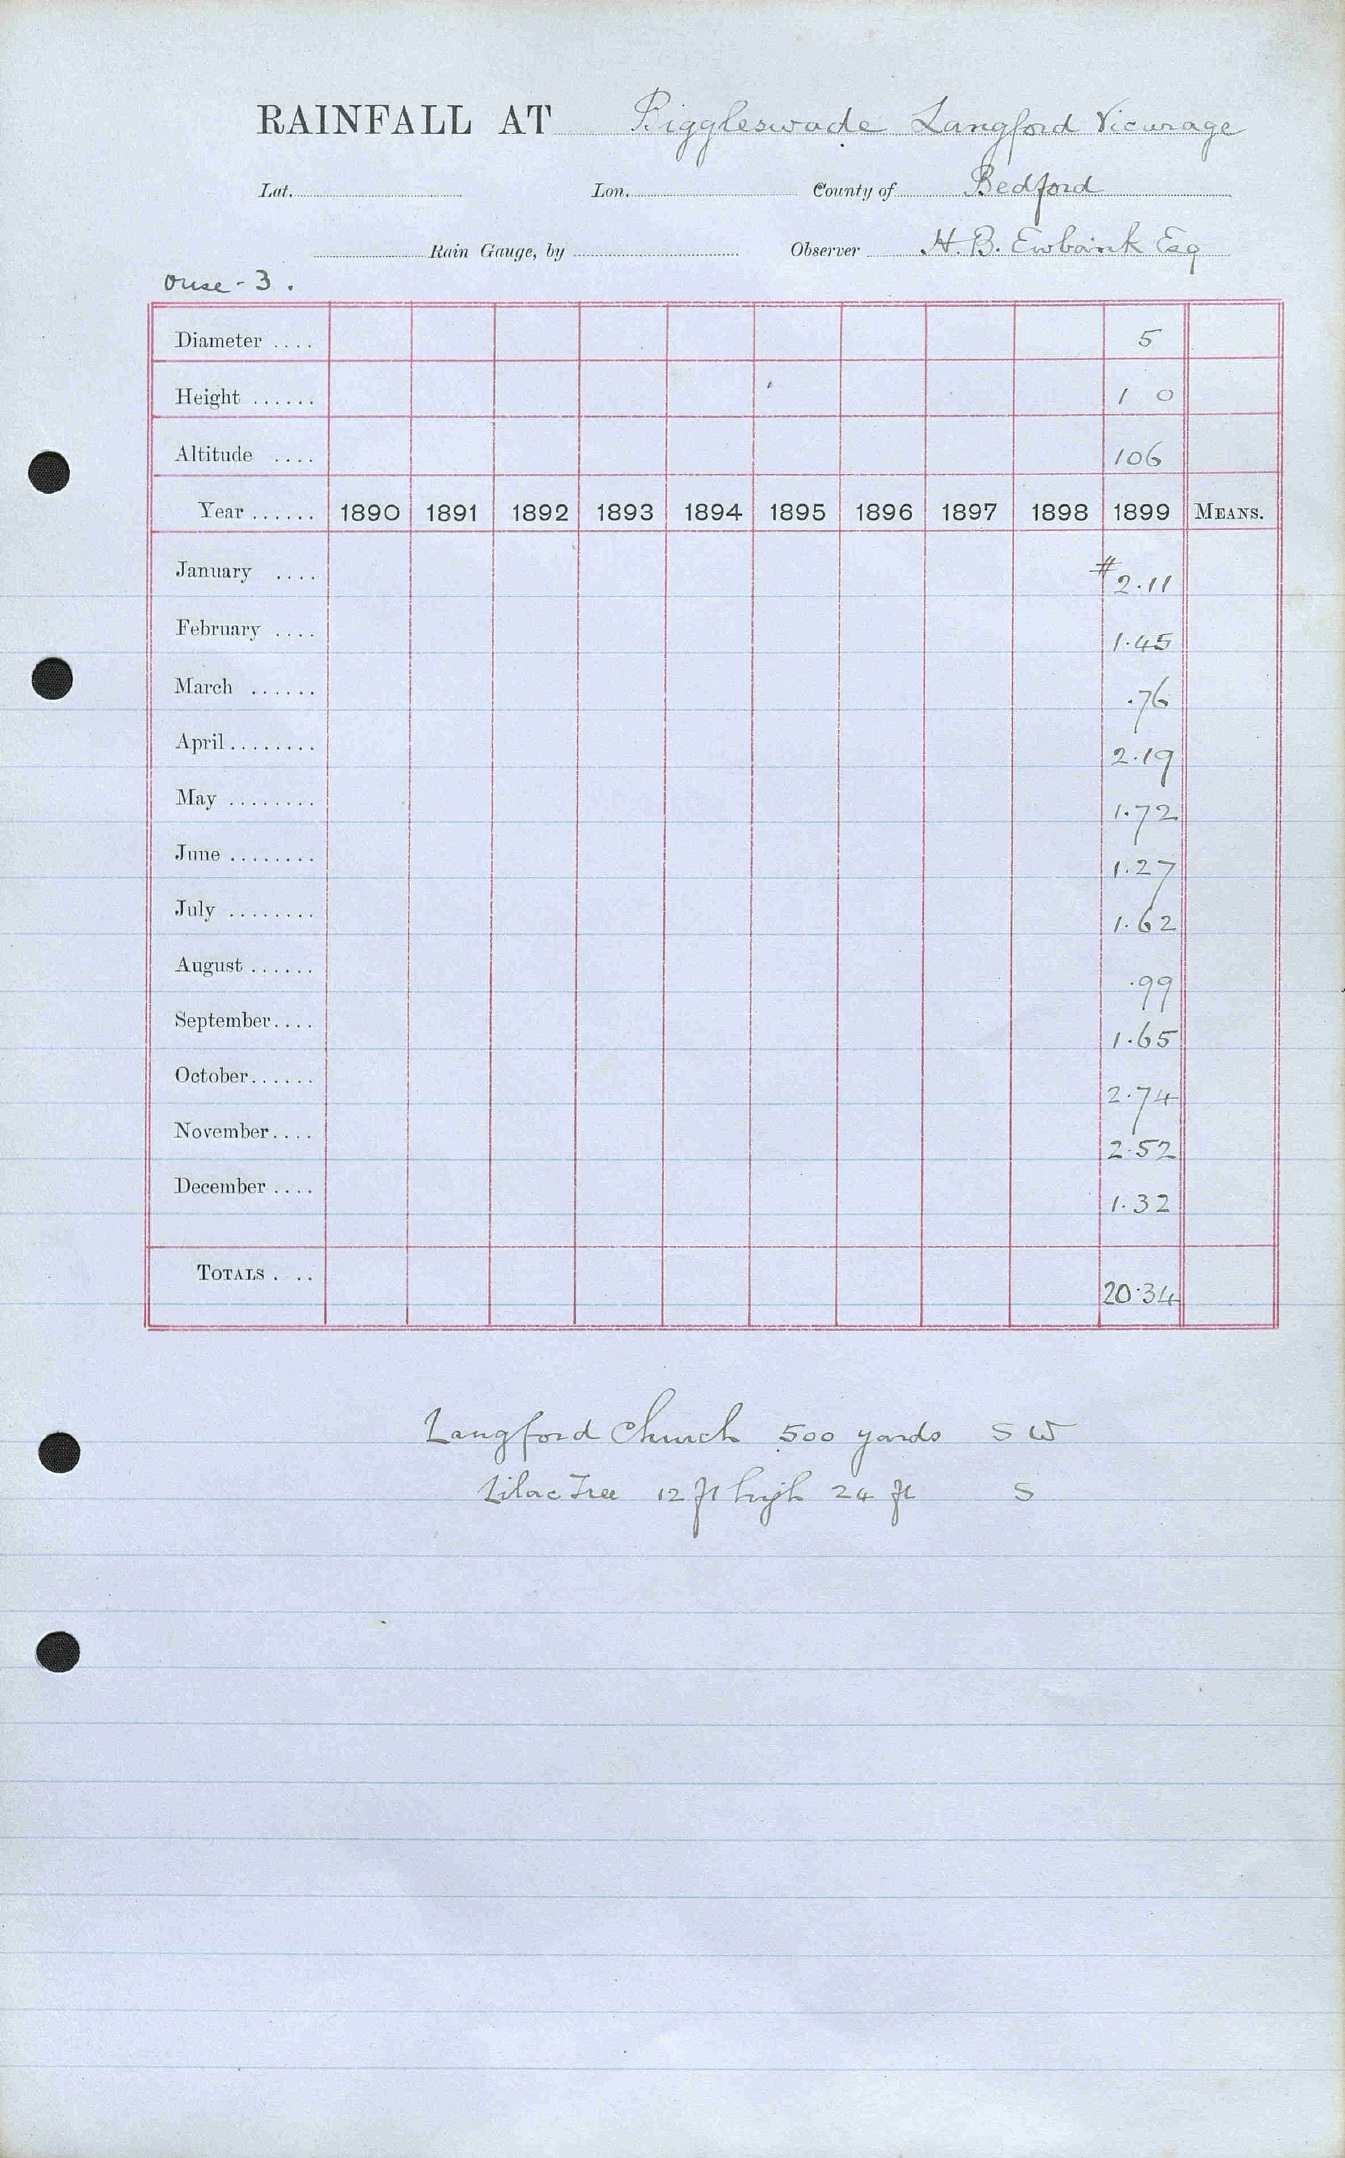 RAINFALL AT Biggleswade Langford Vicarage
Lat. Lon. County of Bedford
Rain Gauge, by Observer H. B. Ewbank Esq
Ouse - 3 .
Diameter .... 5
Height ...... 1 0
Altitude .... 106
Year ...... 1890 1891 1892 1893 1894 1895 1896 1897 1898 1899 MEANS.
January .... # 2.11
February .... 1.45
March ...... .76
April ........ 2.19
May ........ 1.72
June ........ 1.27
July ........ 1.62
August ...... .99
September.... 1.65
October...... 2.74
November.... 2.52
December .... 1.32
TOTALS . .. 20.34
Langford Church 500 yards S W
Lilac Tree 12 ft high 24 ft S